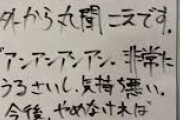 ターから丸聞こえです。
"アンアンアンアン。非常に
うるさいし、気持ち悪い。
今後、やめなければ